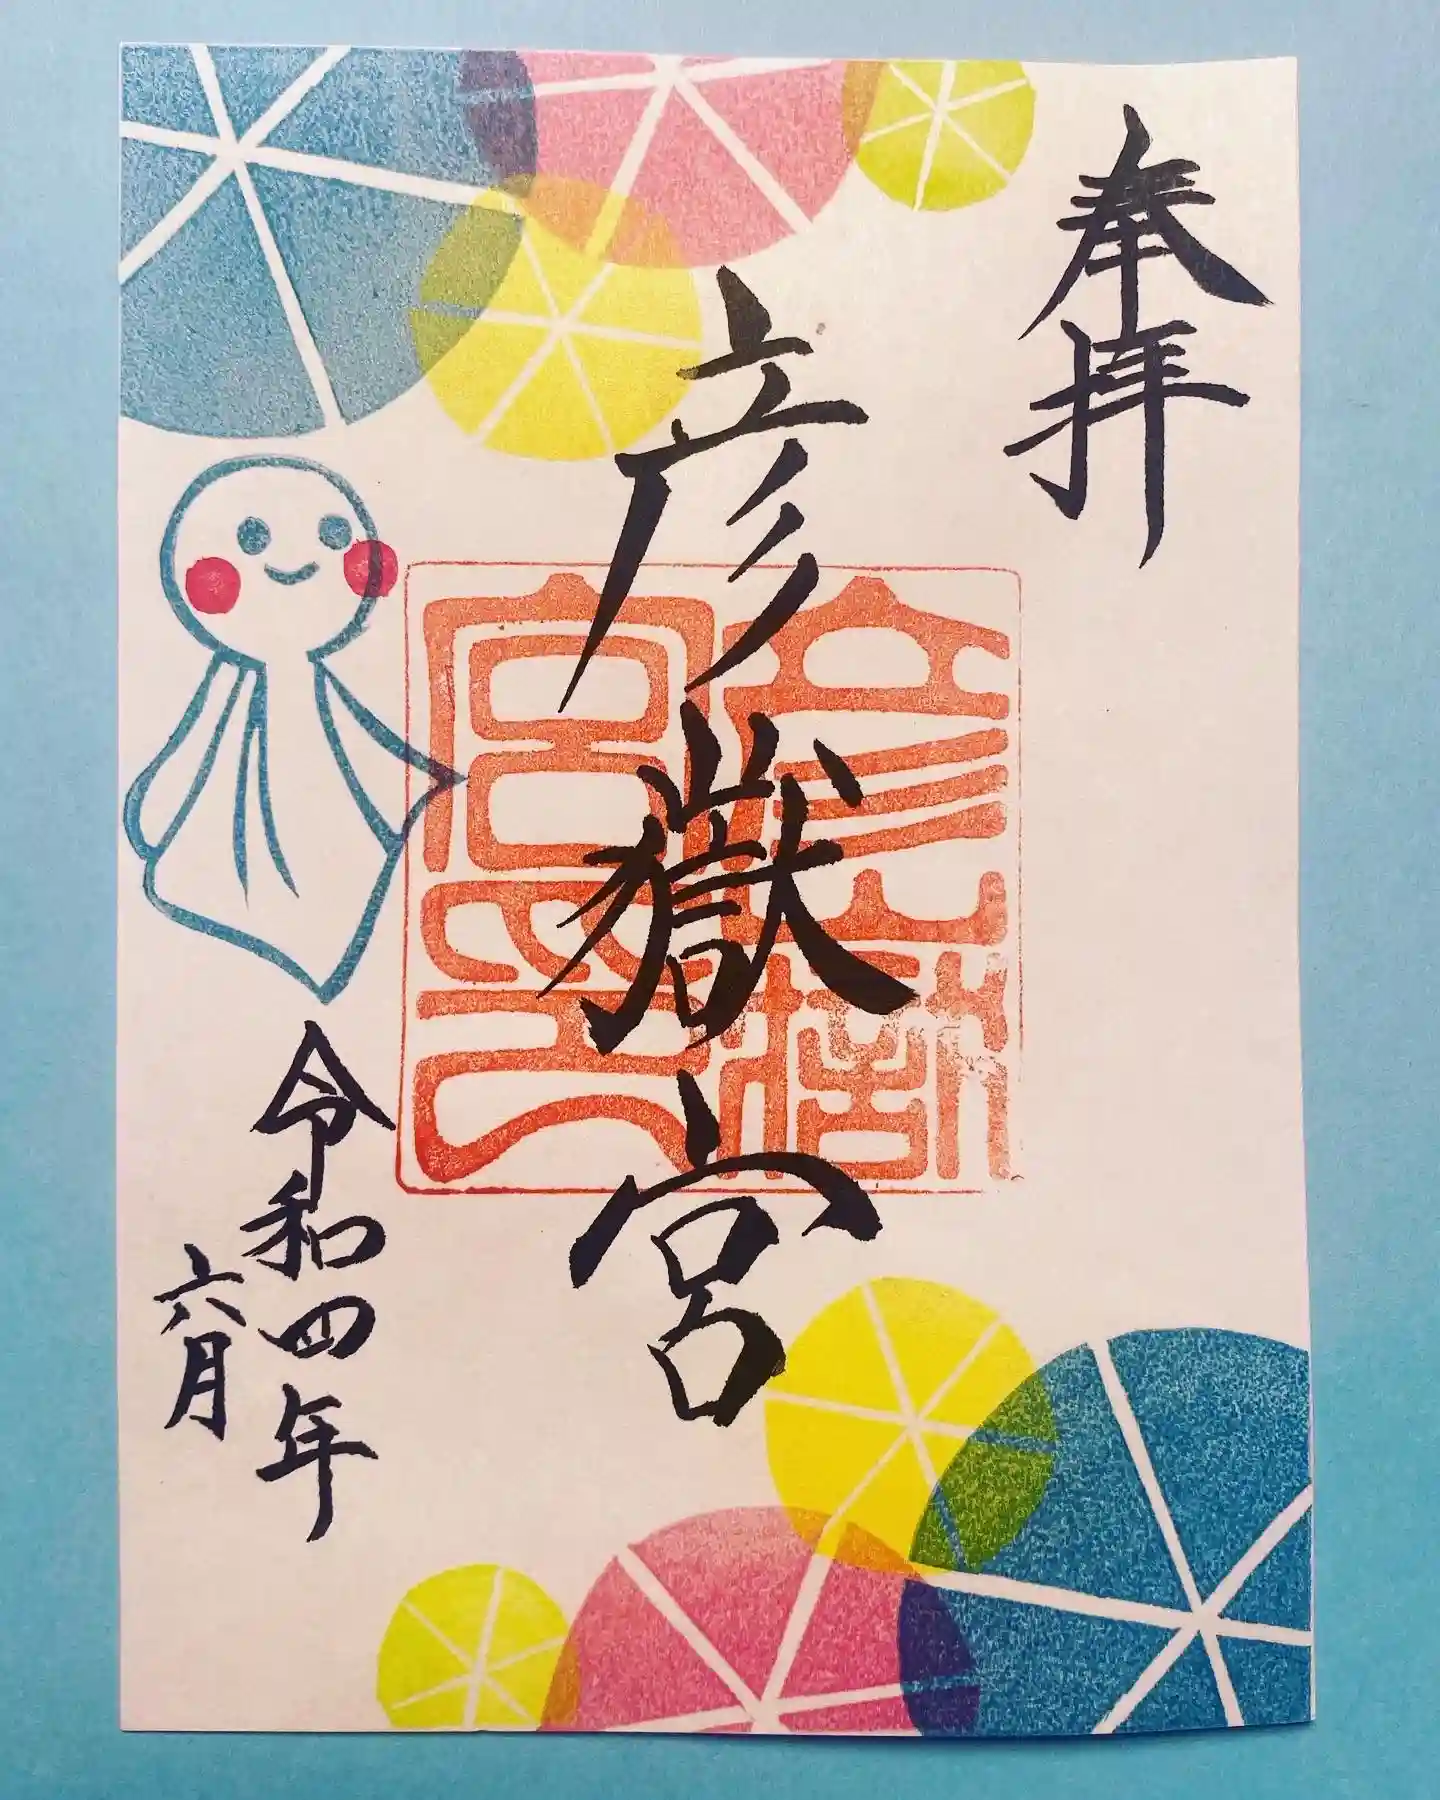 奉拝
彦嶽宮
彦嶽宮印
令和四年
六月